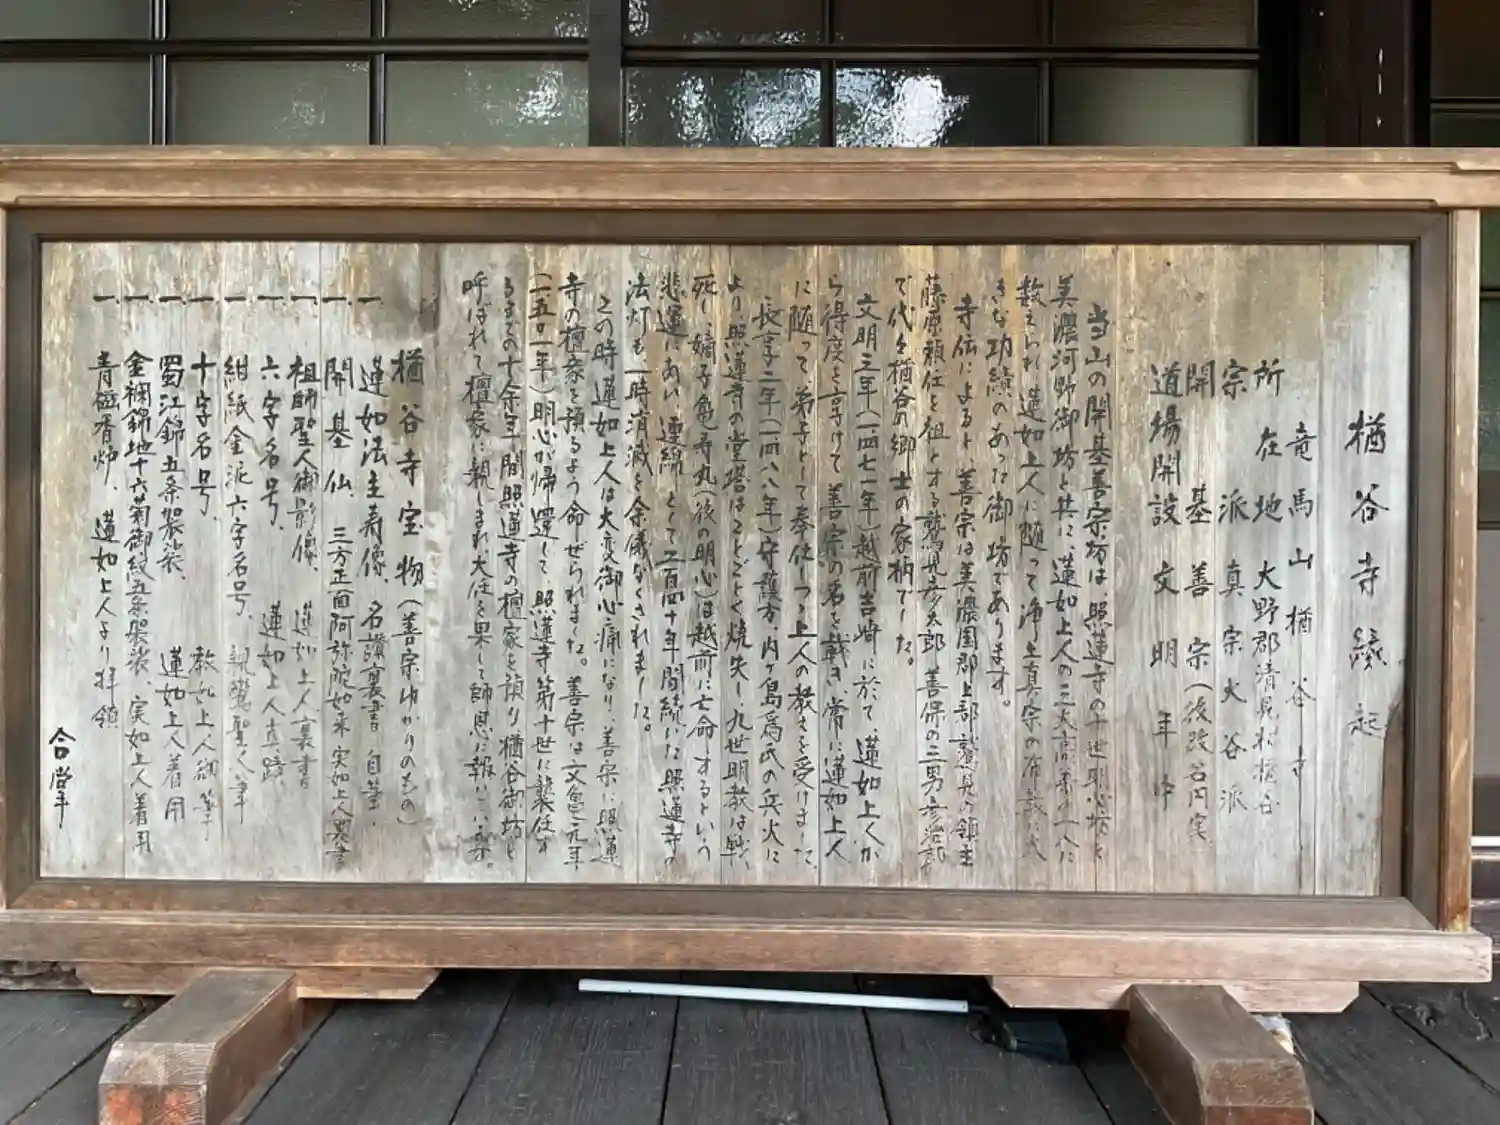 楢谷寺縁起
竜馬山楢谷寺
所在地 大野郡清見村楢谷
宗派 真宗大谷派
開基 善宗(後改名円実
道場開設 文明年中
当山の開基善宗坊は、照蓮寺の十世明心坊と
美濃河野御坊と共に、蓮如上人の三大高弟の一人に
数えられ、蓮如上人に随って浄土真宗の布教に大
きな功績のあった御坊であります。
寺伝によると、善宗は美濃国郡上郡鷲見の領主
藤原頼任を祖とする鷲見彦太郎善保の三男彦治郎
で代々楢谷の郷士の家柄でした。
文明三年(一四七一年)越前吉崎に於て、蓮如上人か
ら得度を享けて善宗の名を戴き、常に蓮如上人
に随って弟子として奉仕しつゝ上人の教えを受けました。
長享二年(一四八八年)守護方、内ヶ島為氏の兵火に
より照蓮寺の堂塔はことごとく焼失し、九世明教は戦
死し、嫡子亀寿丸(後の明心)は越前に亡命するという
悲運にあい、連綿として二百四十年間続いた照蓮寺の
法灯も一時消滅を余儀なくされました。
この時蓮如上人は大変御心痛になり、善宗に照蓮
寺の檀家を預るよう命ぜられました。善宗は文亀元年
(一五〇一年)明心が帰還して、照蓮寺第十世に襲任す
るまでの十余年間照蓮寺の檀家を預り楢谷御坊と
呼ばれて檀家に親しまれ、大任を果して師恩に報いました。
楢谷寺宝物(善宗ゆかりのもの)
一、蓮如法主寿像、名讃裏書 自筆、
一、開基仏、三方正面阿弥陀如来 実如上人裏書
一、祖師聖人御影像、蓮如上人裏書
一、六字名号、蓮如上人真蹟、
一、紺紙金泥六字名号、親鸞聖人筆
一、十字名号、教如上人御筆、
一、蜀江錦五条袈裟、蓮如上人着用
一、金襴錦地十六菊御紋五条袈裟、実如上人着用
一、青磁香炉、蓮如上人より拝領
合掌